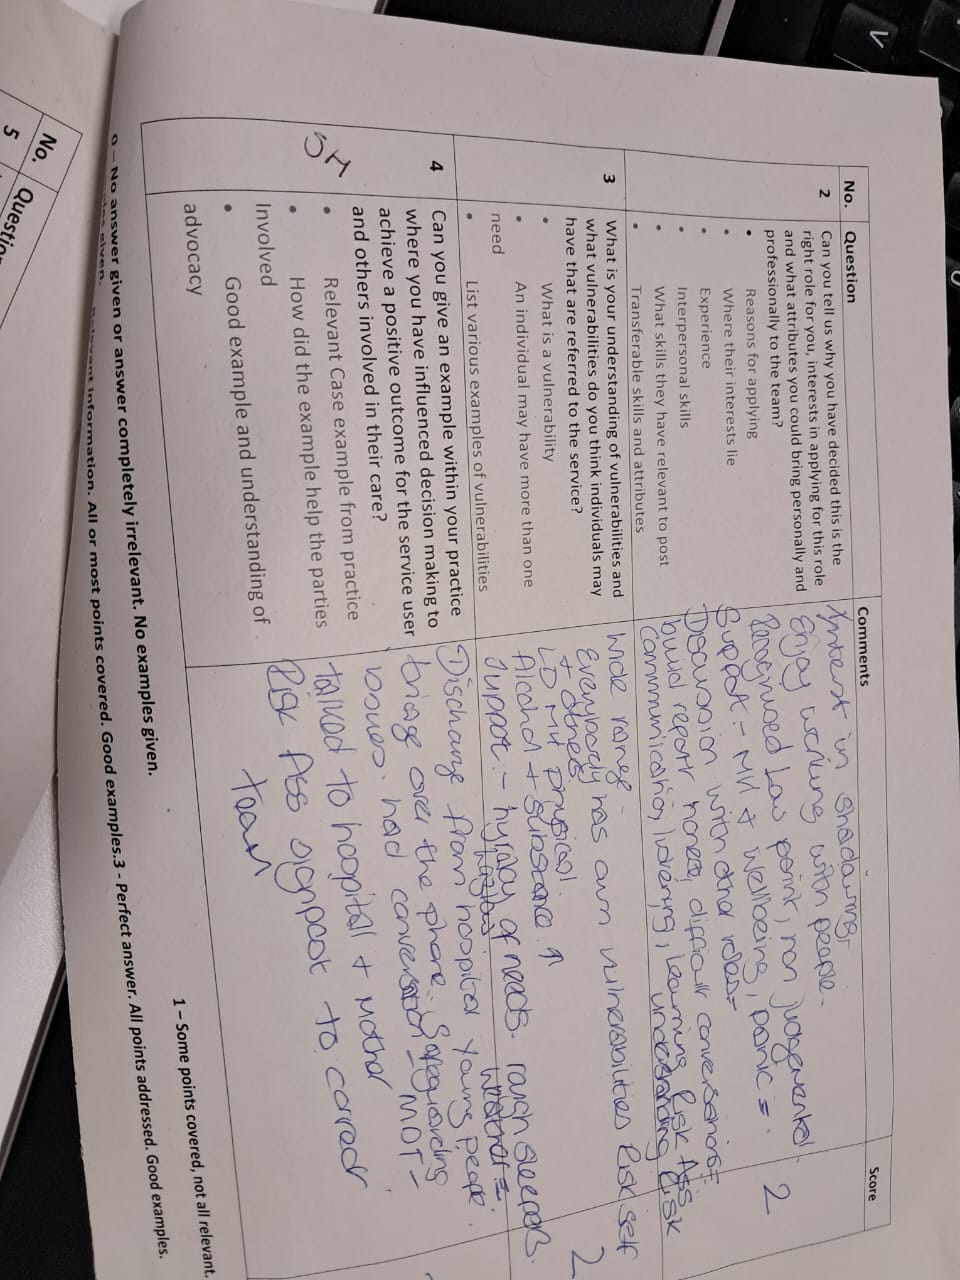 No.
Question
Comments
Score
2
Can you tell us why you have decided this is the
right role for you, interests in applying for this role
and what attributes you could bring personally and
professionally to the team?
• Reasons for applying
• Where their interests lie
• Experience
• Interpersonal skills
• What skills they have relevant to post
• Transferable skills and attributes
Interest in shadowing-
Enjoy working with people.
Recognised Low point, non judgemental.
Support - MH + wellbeing, panic =.
Discussion with other roles=
build report honest, difficult conversations=
Communication, listening, learning Risk Ass
understanding Risk
2
3
What is your understanding of vulnerabilities and
what vulnerabilities do you think individuals may
have that are referred to the service?
• What is a vulnerability
• An individual may have more than one
need
• List various examples of vulnerabilities
wide range -
Everybody has own vulnerabilities Risk self
+ others
LD MH physical.
Alcohol + substance. ↑
Support - hyrachy of needs. rough sleepers.
weather =.
2
4
SH
Can you give an example within your practice
where you have influenced decision making to
achieve a positive outcome for the service user
and others involved in their care?
• Relevant Case example from practice
• How did the example help the parties
Involved
• Good example and understanding of
advocacy
Discharge from hospital young people.
triage over the phone. Safeguarding
issues. had conversation - MDT -
talked to hospital + Mother
Risk Ass signpost to correct
team
0 – No answer given or answer completely irrelevant. No examples given.
1 – Some points covered, not all relevant.
Relevant information. All or most points covered. Good examples.3 - Perfect answer. All points addressed. Good examples.
No.
Question
5
V